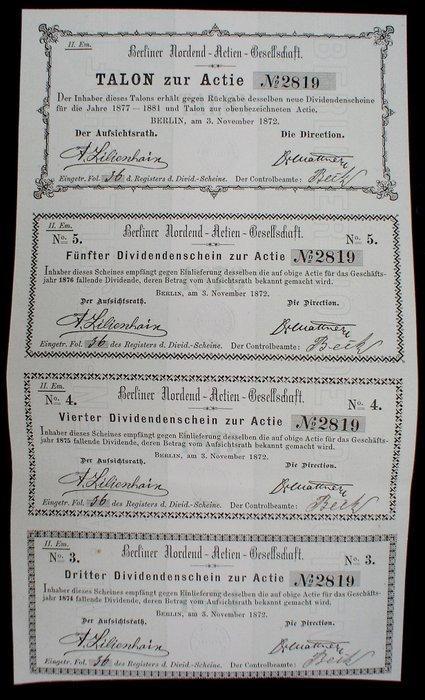 II. Em.
Berliner Nordend-Actien-Gesellschaft.
TALON zur Actie № 2819
Der Inhaber dieses Talons erhält gegen Rückgabe desselben neue Dividendenscheine
für die Jahre 1877—1881 und Talon zur obenbezeichneten Actie.
BERLIN, am 3. November 1872.
Der Aufsichtsrath. Die Direction.
A. Lilienhain
Eingetr. Fol. 36 d. Registers d. Divid.-Scheine. Der Controlbeamte: Beck
II. Em.
No. 5. Berliner Nordend-Actien-Gesellschaft. No. 5.
Fünfter Dividendenschein zur Actie № 2819
Inhaber dieses Scheines empfängt gegen Einlieferung desselben die auf obige Actie für das Geschäfts-
jahr 1876 fallende Dividende, deren Betrag vom Aufsichtsrath bekannt gemacht wird.
BERLIN, am 3. November 1872.
Der Aufsichtsrath. Die Direction.
A. Lilienhain
Eingetr. Fol. 36 des Registers d. Divid.-Scheine. Der Controlbeamte: Beck
II. Em.
No. 4. Berliner Nordend-Actien-Gesellschaft. No. 4.
Vierter Dividendenschein zur Actie № 2819
Inhaber dieses Scheines empfängt gegen Einlieferung desselben die auf obige Actie für das Geschäfts-
jahr 1875 fallende Dividende, deren Betrag vom Aufsichtsrath bekannt gemacht wird.
BERLIN, am 3. November 1872.
Der Aufsichtsrath. Die Direction.
A. Lilienhain
Eingetr. Fol. 36 des Registers d. Divid.-Scheine. Der Controlbeamte: Beck
II. Em.
No. 3. Berliner Nordend-Actien-Gesellschaft. No. 3.
Dritter Dividendenschein zur Actie № 2819
Inhaber dieses Scheines empfängt gegen Einlieferung desselben die auf obige Actie für das Geschäfts-
jahr 1874 fallende Dividende, deren Betrag vom Aufsichtsrath bekannt gemacht wird.
BERLIN, am 3. November 1872.
Der Aufsichtsrath. Die Direction.
A. Lilienhain
Eingetr. Fol. 36 des Registers d. Divid.-Scheine. Der Controlbeamte: Beck